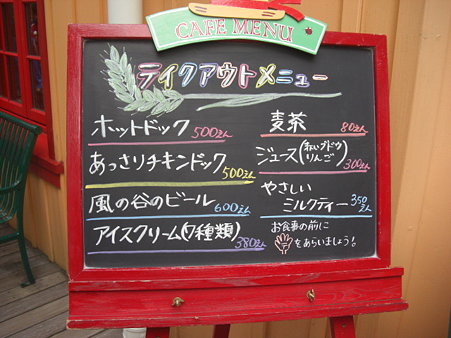 CAFE MENU
テイクアウトメニュー
ホットドック 500えん
あっさりチキンドック 500えん
風の谷のビール 600えん
アイスクリーム(7種類) 380えん
麦茶 80えん
ジュース(れいぶどう りんご) 300えん
やさしい
ミルクティー 350えん
お食事の前に
をあらいましょう!